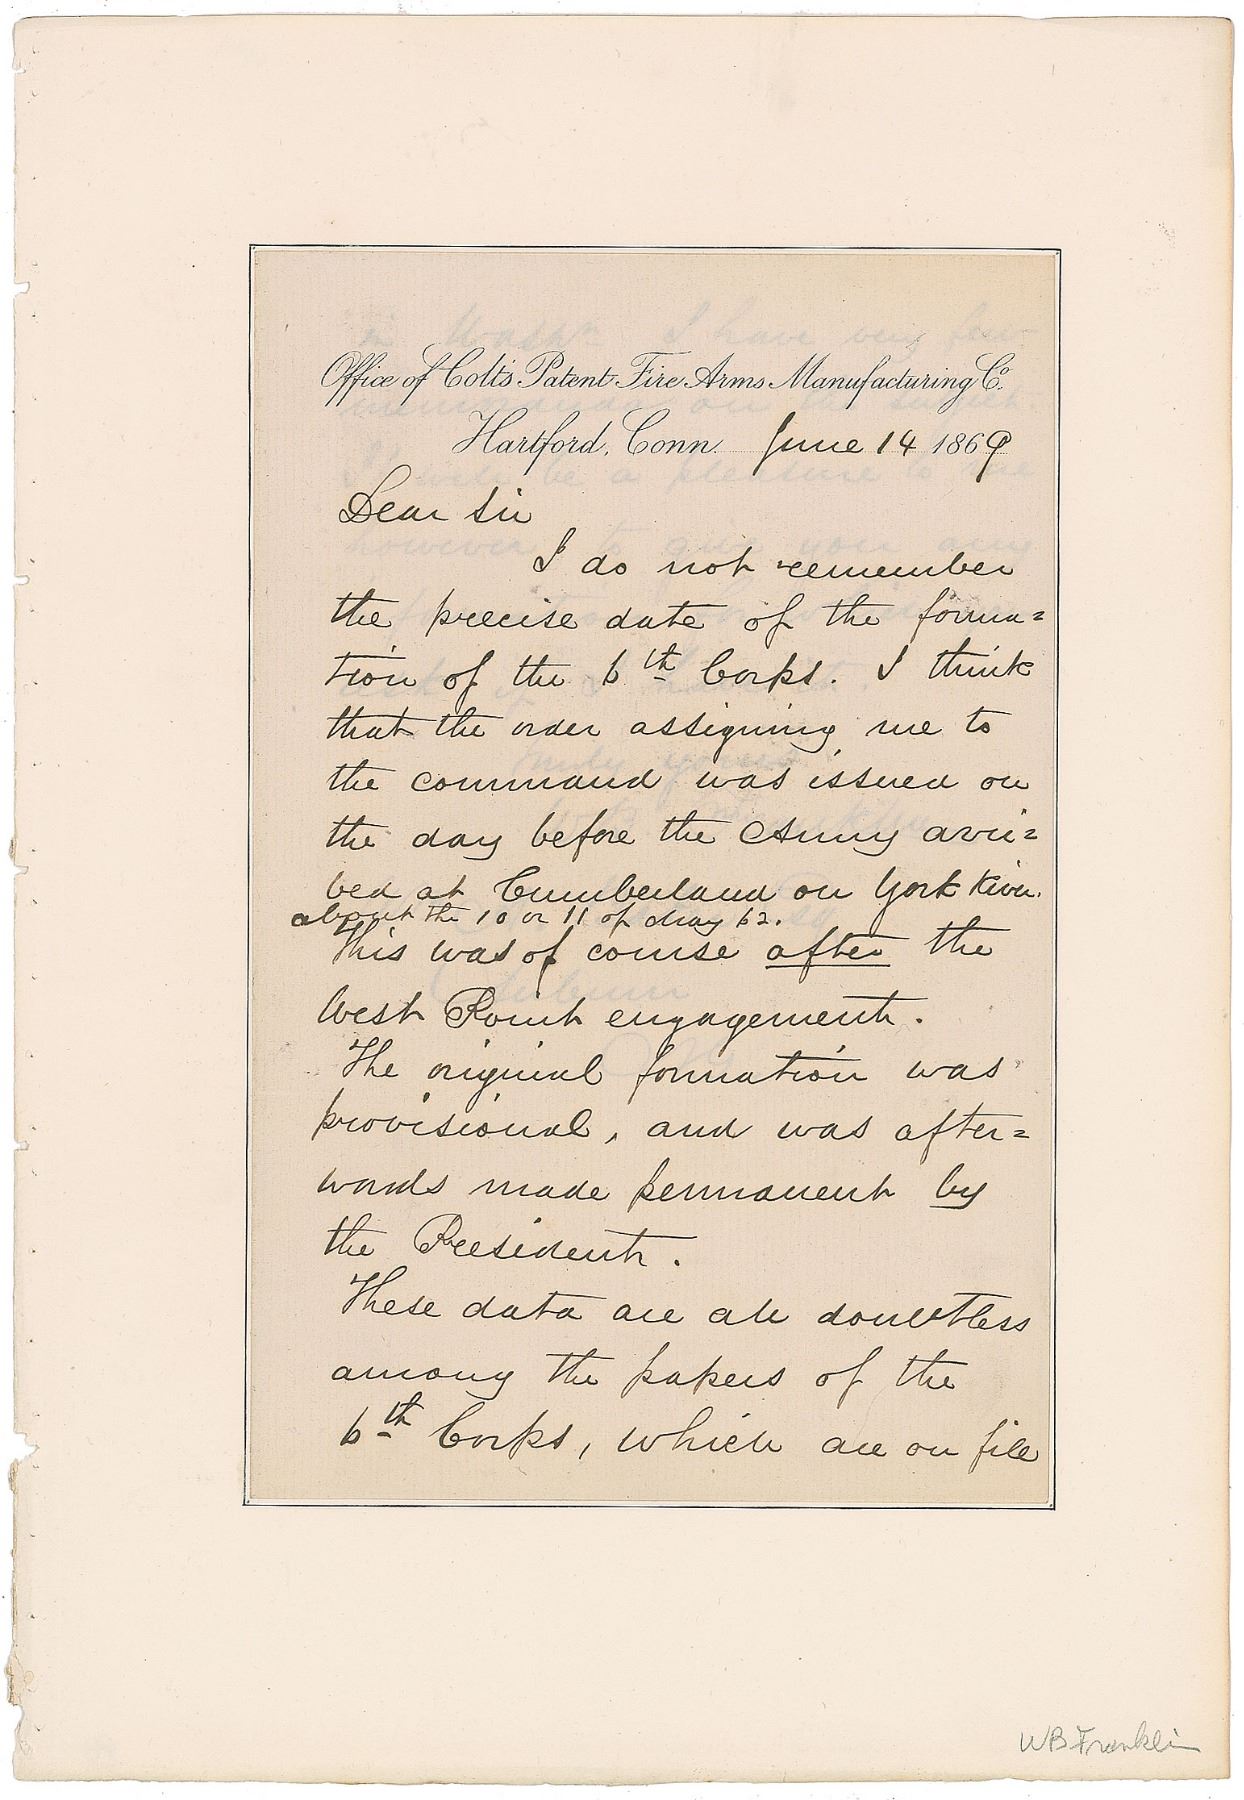 Office of Colt's Patent Fire Arms Manufacturing Co.
Hartford, Conn. June 14 1869
Dear Sir
I do not remember
the precise date of the forma=
tion of the 6th Corps. I think
that the order assigning me to
the command was issued on
the day before the Army arri=
ved at Cumberland on York River.
about the 10 or 11 of May 62.
This was of course after the
West Point engagement.
The original formation was
provisional, and was after=
wards made permanent by
the President.
These data are all doubtless
among the papers of the
6th Corps, which are on file
WB Franklin